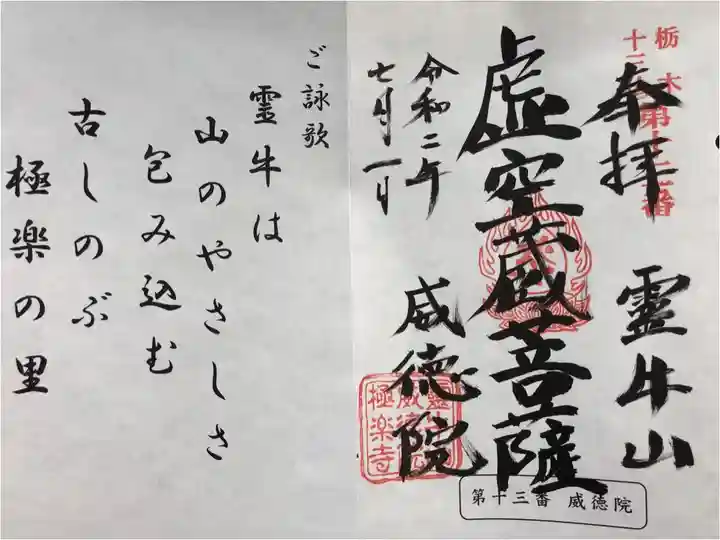 栃木
十三
第十三番
奉拝
霊牛山
虚空蔵菩薩
威徳院
令和二年
七月一日
極楽寺
第十三番 威徳院
ご詠歌
霊牛は
山のやさしさ
包み込む
古しのぶ
極楽の里